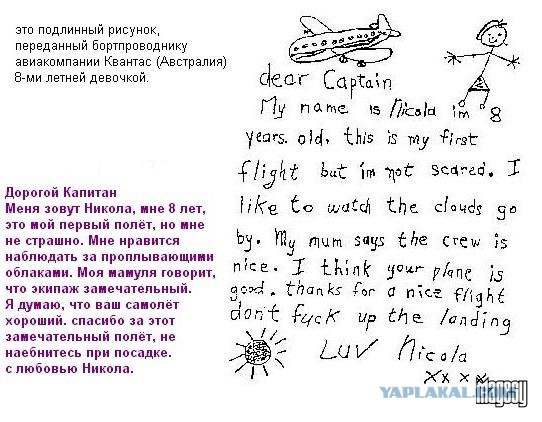 это подлинный рисунок,
переданный бортпроводнику
авиакомпании Квантас (Австралия)
8-ми летней девочкой.
dear Captain
My name is Nicola im 8
years old, this is my first
flight but im not scared. I
like to watch the clouds go
by. My mum says the crew is
nice. I think your plane is
good. thanks for a nice flight
don't fuck up the landing
LUV Nicola
xxxx
Дорогой Капитан
Меня зовут Никола, мне 8 лет,
это мой первый полёт, но мне
не страшно. Мне нравится
наблюдать за проплывающими
облаками. Моя мамуля говорит,
что экипаж замечательный.
Я думаю, что ваш самолёт
хороший. спасибо за этот
замечательный полёт, не
наебнитесь при посадке.
с любовью Никола.
YAPLAKAL.COM